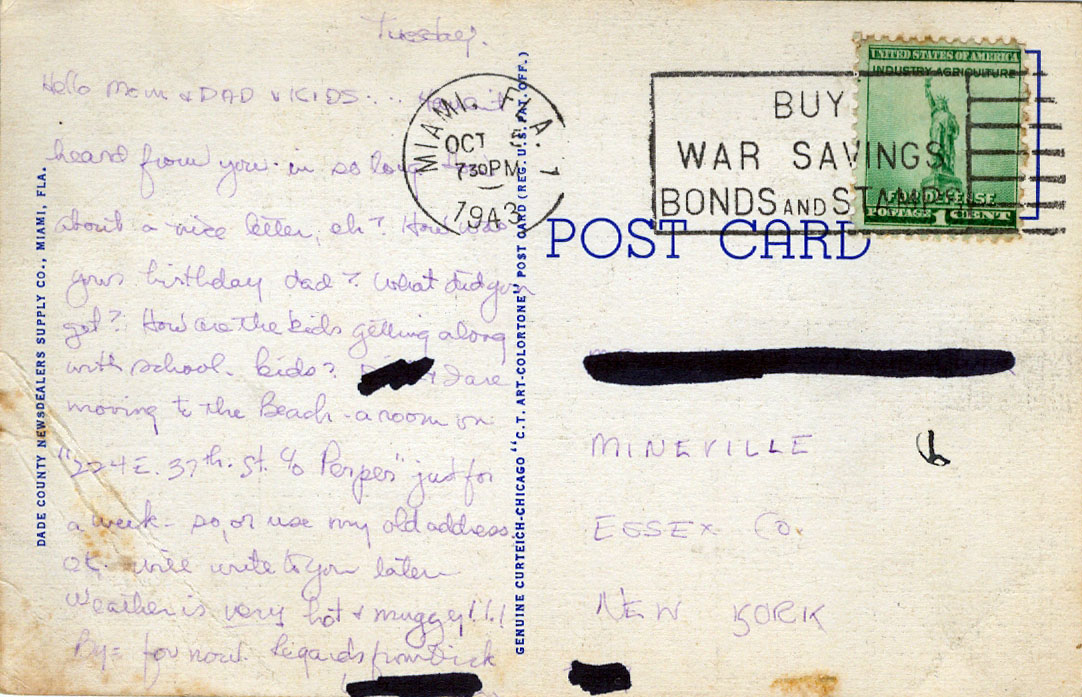 Tuesday.
Hello Mom & DAD & KIDS... Haven't
heard from you in so long
about a nice letter, eh? How was
your birthday dad? What did you
get? How are the kids getting along
with school - kids? & I are
moving to the Beach - a room on
"224 E. 37th. St. c/o Perper" just for
a week - so, or use my old address.
OK. will write to you later
Weather is very hot & muggy!!!!
By= for now. Regards from Dick
DADE COUNTY NEWSDEALERS SUPPLY CO., MIAMI, FLA.
GENUINE CURTEICH-CHICAGO "C. T. ART-COLORTONE" POST CARD (REG. U. S. PAT. OFF.)
MIAMI, FLA. 1
OCT 5
730PM
1943
BUY
WAR SAVINGS
BONDS AND STAMPS
UNITED STATES OF AMERICA
INDUSTRY AGRICULTURE
FOR DEFENSE
POSTAGE 1 CENT
POST CARD
MINEVILLE
6
ESSEX Co.
NEW YORK